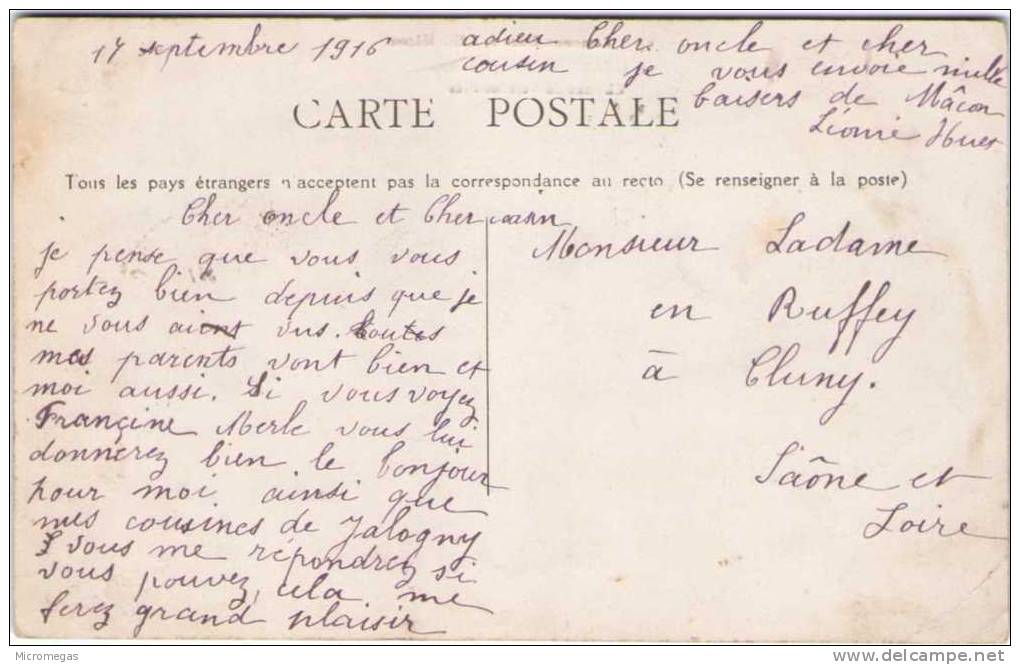 17 septembre 1916
adieu Cher oncle et cher
cousin je vous envoie mille
baisers de Mâcon
Léonie Huet
CARTE POSTALE
Tous les pays étrangers n'acceptent pas la correspondance au recto (Se renseigner à la poste)
Cher oncle et Cher cousin
je pense que vous vous
portez bien depuis que je
ne vous aient vus. toutes
mes parents vont bien et
moi aussi. Si vous voyez
Françine Merle vous lui
donnerez bien le bonjour
pour moi ainsi que
mes cousines de Jalogny
vous me répondrez si
vous pouvez, cela me
ferez grand plaisir
Monsieur Ladame
en Ruffey
à Cluny.
Saône et
Loire
Micromegas
delcampe.net